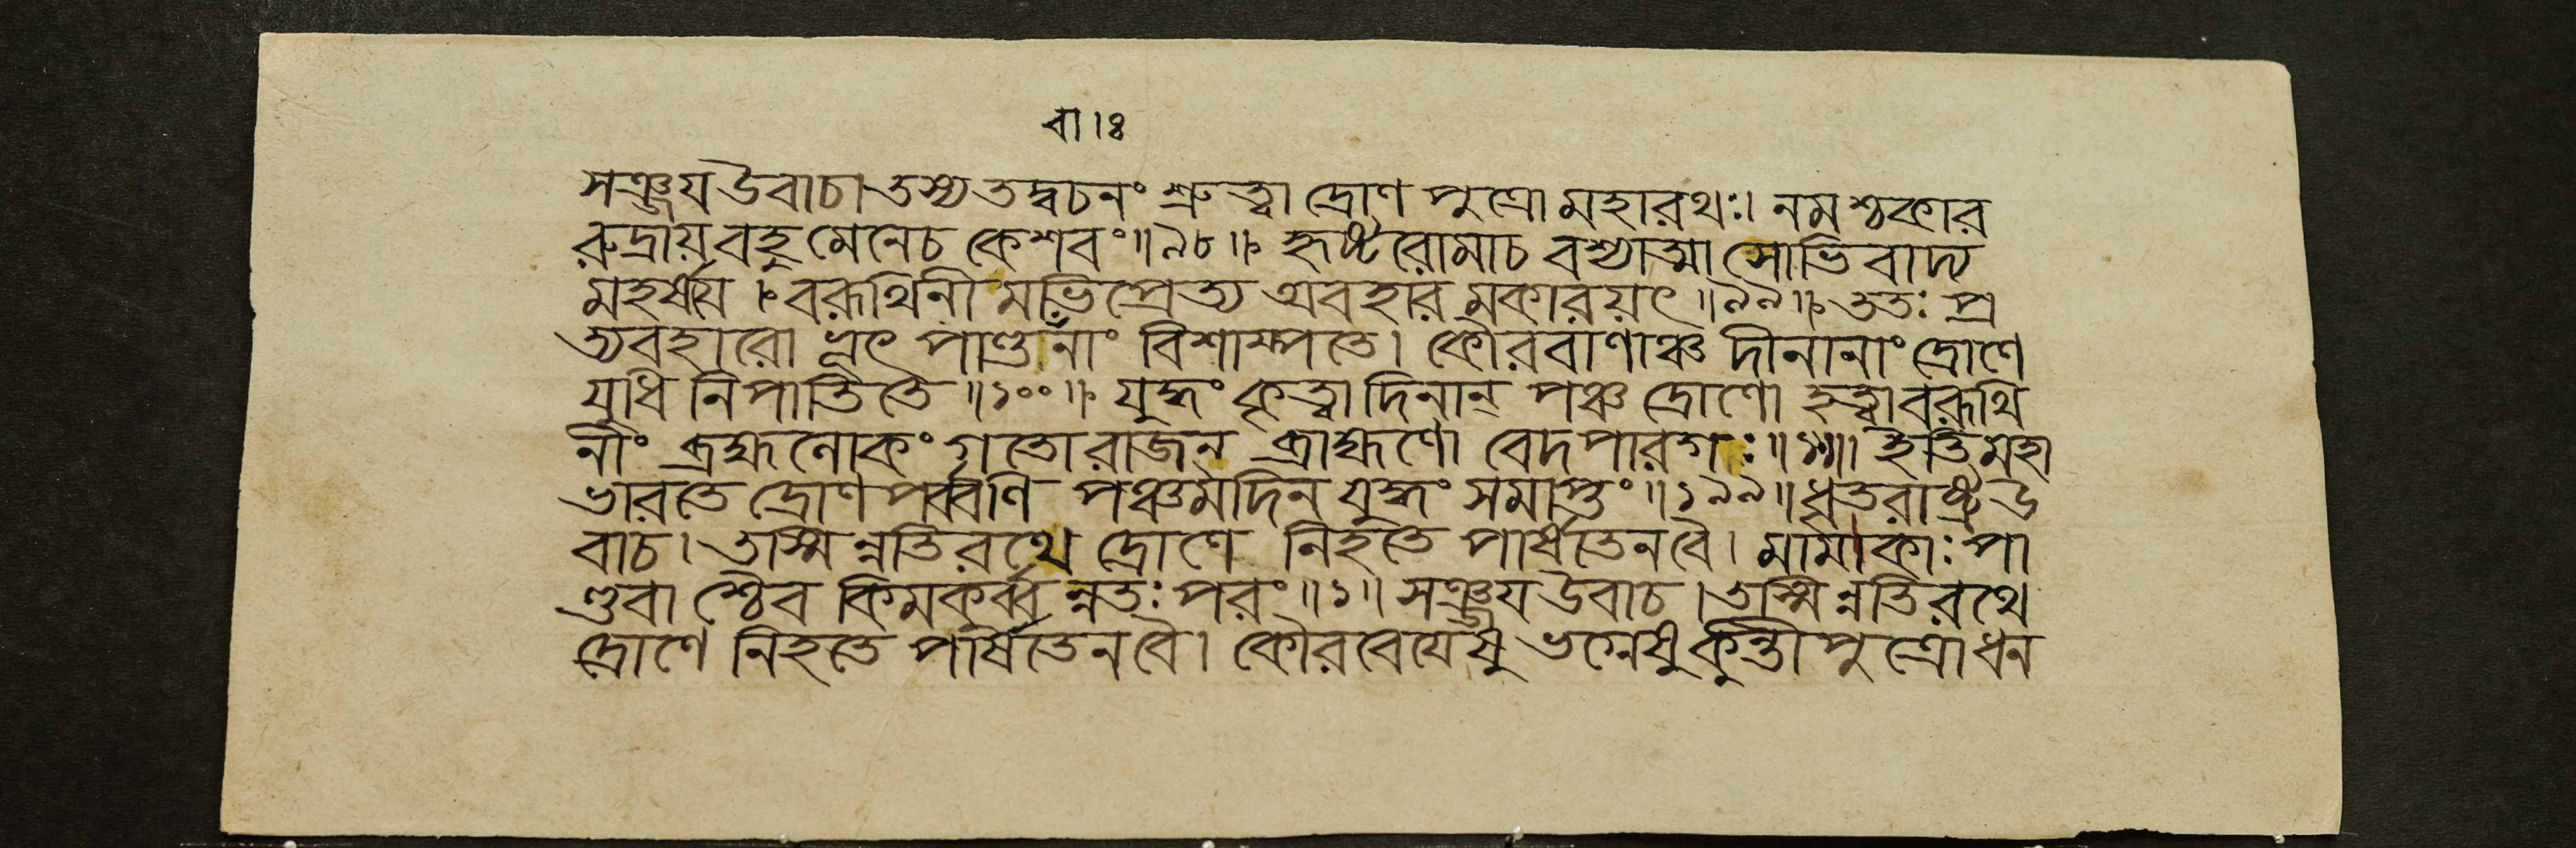 বা।ঃ
সঞ্জয উবাচ। তস্য তদ্বচনং শ্রুত্বা দ্রোণ পুত্রো মহারথঃ। নমশ্চকার
রুদ্রায় বহু মেনেচ কেশবং॥৯৮॥ হৃষ্টরোমাচ বশ্যাত্মা সোভিবাদ্য
মহর্ষয়ে। বরূথিনী মভিপ্রেত্য অবহার মকারয়ৎ॥৯৯॥ ততঃ প্র
ত্যবহারো ভূৎ পাণ্ডূনাং বিশাম্পতে। কৌরবাণাঞ্চ দীনানাং দ্রোণে
যুধি নিপাতিতে॥১০০॥ যুদ্ধং কৃত্বা দিনান্ পঞ্চ দ্রোণো হত্বা বরূথি
নীং ব্রহ্মলোকং গতো রাজন ব্রাহ্মণো বেদপারগঃ॥ ইতি মহা
ভারতে দ্রোণ পর্ব্বণি পঞ্চমদিন যুদ্ধং সমাপ্তং॥১৯৯॥ ধৃতরাষ্ট্র উ
বাচ। তস্মি ন্নতিরথে দ্রোণে নিহতে পার্ষতেন বৈ। মামাকাঃ পা
ণ্ডবা শ্চৈব কিমকুর্ব্ব ন্নতঃ পরং॥১॥ সঞ্জয উবাচ। তস্মি ন্নতিরথে
দ্রোণে নিহতে পার্ষতেন বৈ। কৌরবেযেষু ভগ্নেষু কুন্তীপুত্রো ধন